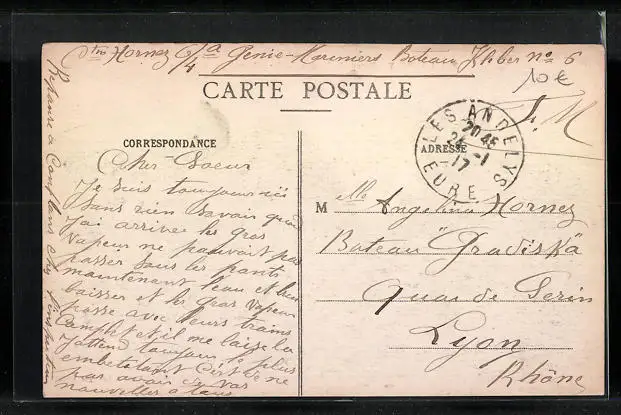 Hornez Génie-Mariniers Bateau Kléber no 6
10 €
CARTE POSTALE
F. M
CORRESPONDANCE
ADRESSE
LES ANDELYS
20 45
24 -1
17
EURE
Cher Soeur
Je suis toujours ici
sans rien savoir quand
J'ai arrivee les gros
vapeur ne pouvait pas
passer sous les ponts
maintenant l'eau et bien
baisser et les gros vapeur
passe avec leurs trains
Complit et il me laisse la
J'attend toujour le plus
embetatant C'est de ne
pas avoir de vos
nouvelles a tous
M elle Angelina Hornez
Bateau "Gradiska"
Quai de Serin
Lyon
Rhône